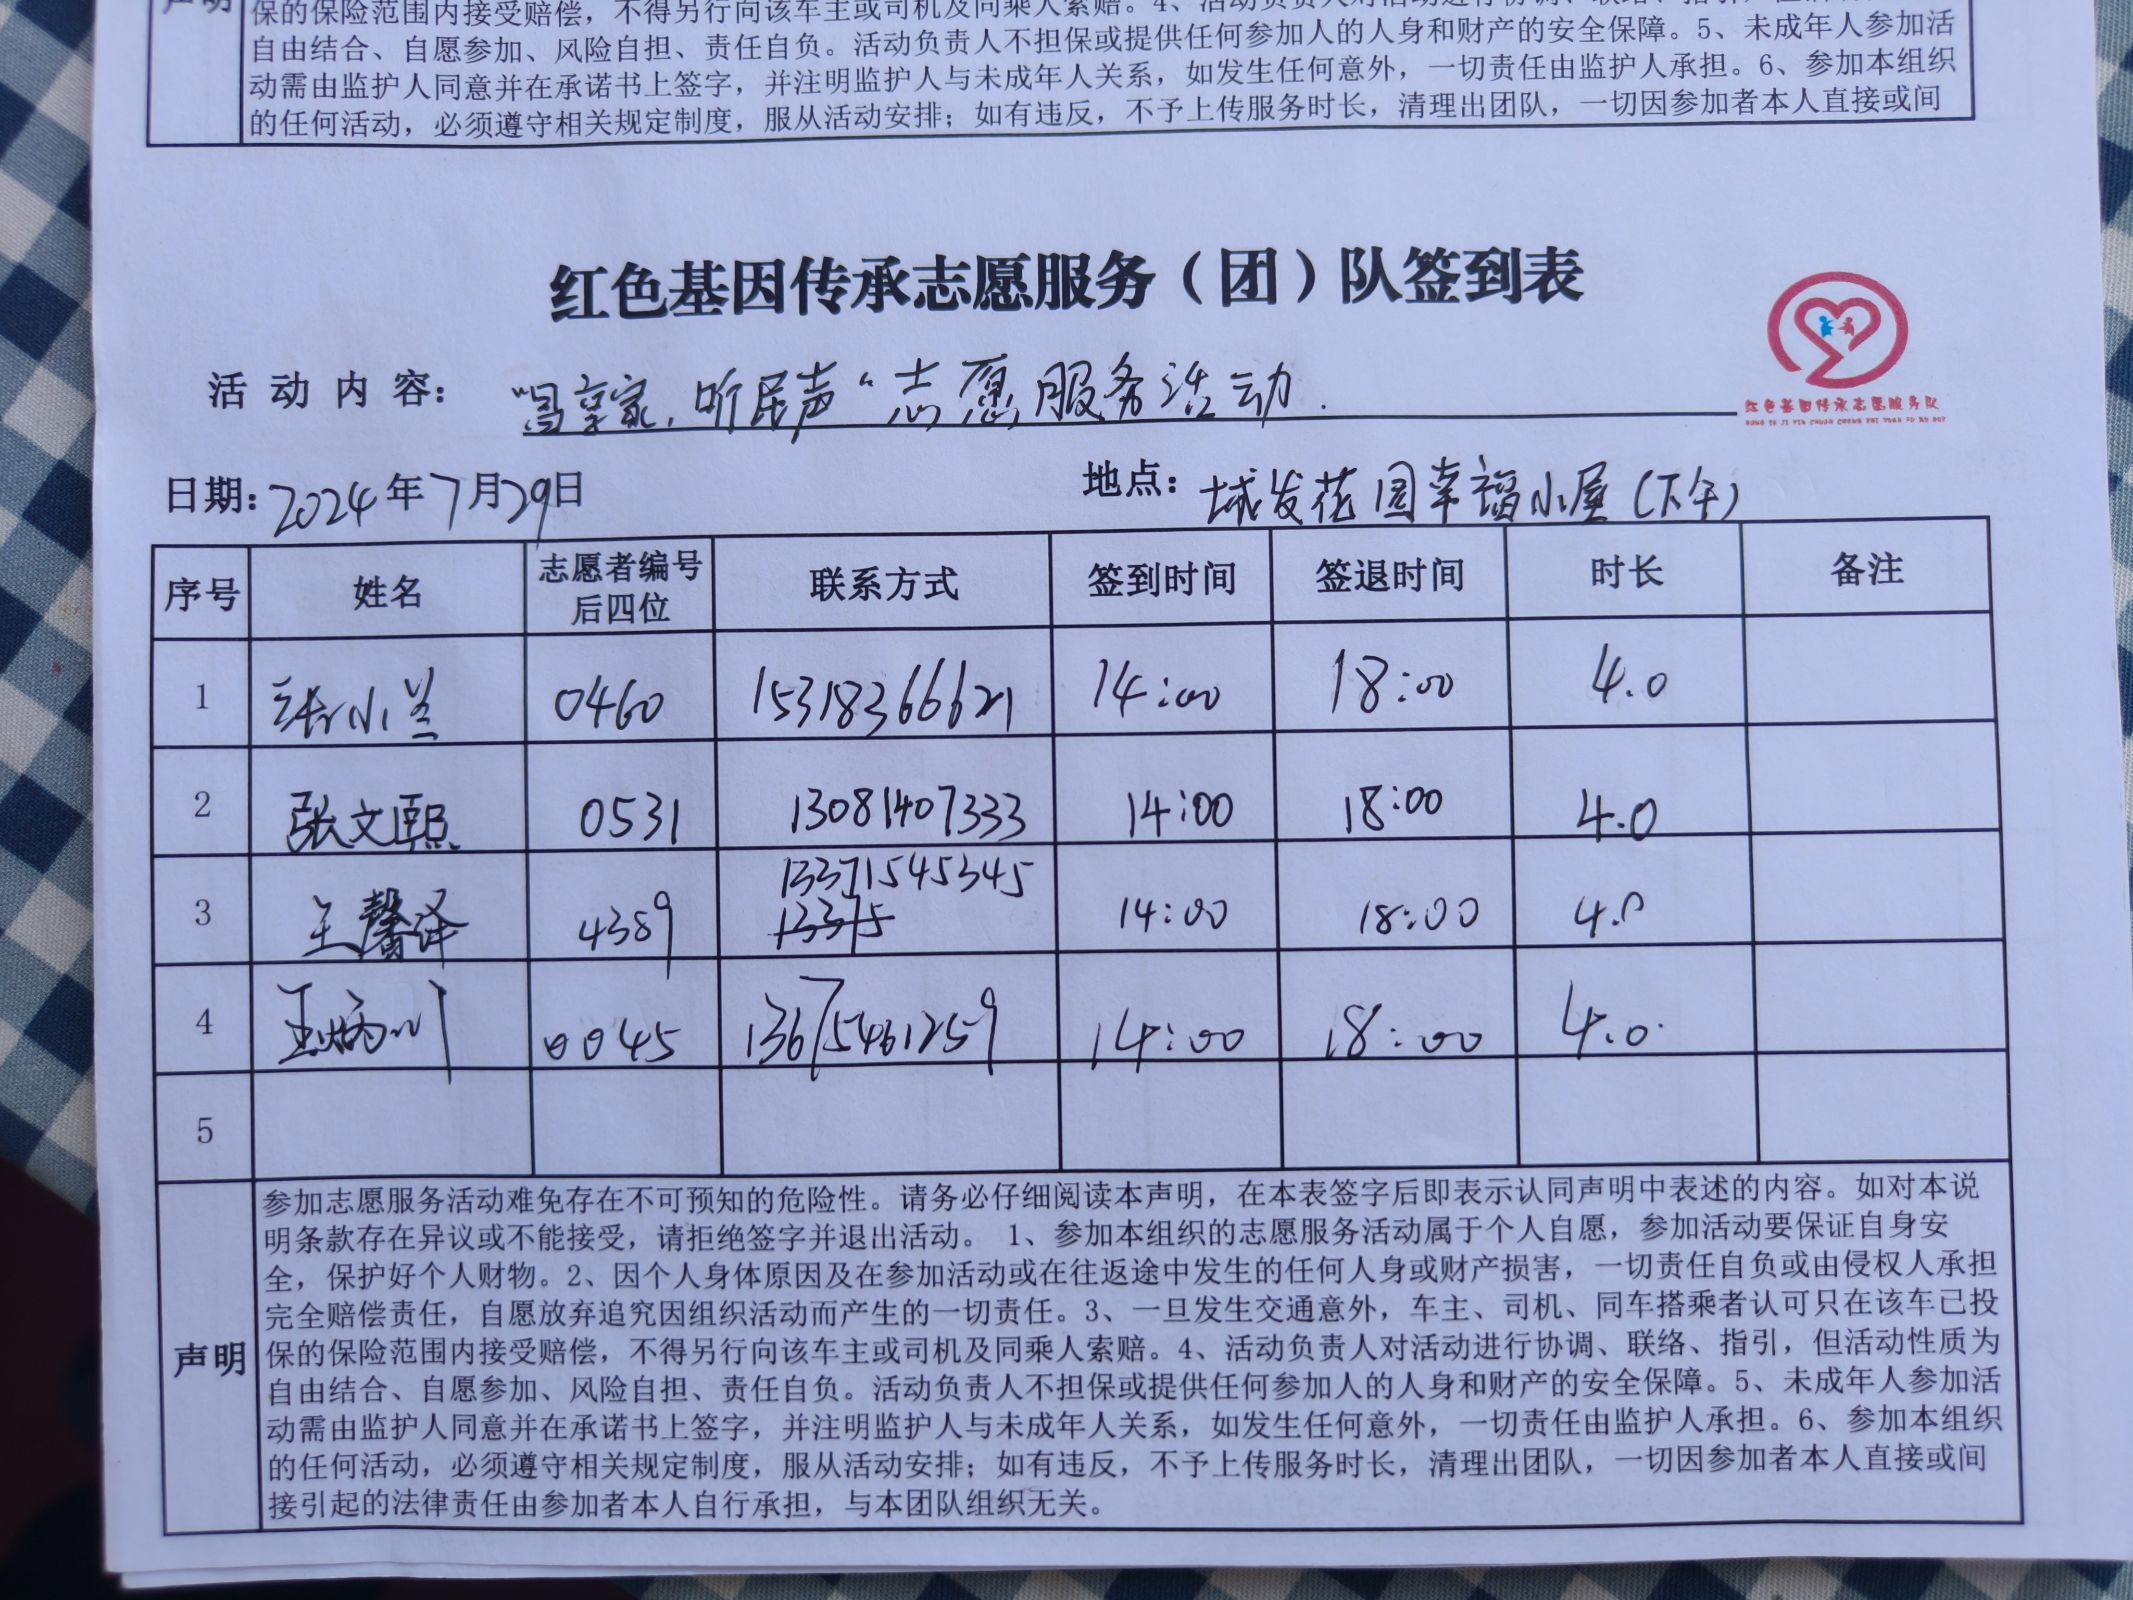 声明
保的保险范围内接受赔偿，不得另行向该车主或司机及同乘人索赔。4、活动负责人对活动进行协调、联络、指引，
自由结合、自愿参加、风险自担、责任自负。活动负责人不担保或提供任何参加人的人身和财产的安全保障。5、未成年人参加活
动需由监护人同意并在承诺书上签字，并注明监护人与未成年人关系，如发生任何意外，一切责任由监护人承担。6、参加本组织
的任何活动，必须遵守相关规定制度，服从活动安排；如有违反，不予上传服务时长，清理出团队，一切因参加者本人直接或间
红色基因传承志愿服务（团）队签到表
红色基因传承志愿服务队
HONG SE JI YIN CHUAN CHENG ZHI YUAN FU WU DUI
活动内容： 享家，听民声“志愿服务活动.
日期：2024年7月29日 地点：城发花园幸福小屋（下午）
序号 姓名 志愿者编号后四位 联系方式 签到时间 签退时间 时长 备注
1 张小兰 0460 15318366621 14:00 18:00 4.0
2 张文熙 0531 13081407333 14:00 18:00 4.0
3 王馨译 4389 13371545345 13375 14:00 18:00 4.0
4 王炳川 0045 13675461259 14:00 18:00 4.0
5
声明
参加志愿服务活动难免存在不可预知的危险性。请务必仔细阅读本声明，在本表签字后即表示认同声明中表述的内容。如对本说
明条款存在异议或不能接受，请拒绝签字并退出活动。 1、参加本组织的志愿服务活动属于个人自愿，参加活动要保证自身安
全，保护好个人财物。2、因个人身体原因及在参加活动或在往返途中发生的任何人身或财产损害，一切责任自负或由侵权人承担
完全赔偿责任，自愿放弃追究因组织活动而产生的一切责任。3、一旦发生交通意外，车主、司机、同车搭乘者认可只在该车已投
保的保险范围内接受赔偿，不得另行向该车主或司机及同乘人索赔。4、活动负责人对活动进行协调、联络、指引，但活动性质为
自由结合、自愿参加、风险自担、责任自负。活动负责人不担保或提供任何参加人的人身和财产的安全保障。5、未成年人参加活
动需由监护人同意并在承诺书上签字，并注明监护人与未成年人关系，如发生任何意外，一切责任由监护人承担。6、参加本组织
的任何活动，必须遵守相关规定制度，服从活动安排；如有违反，不予上传服务时长，清理出团队，一切因参加者本人直接或间
接引起的法律责任由参加者本人自行承担，与本团队组织无关。